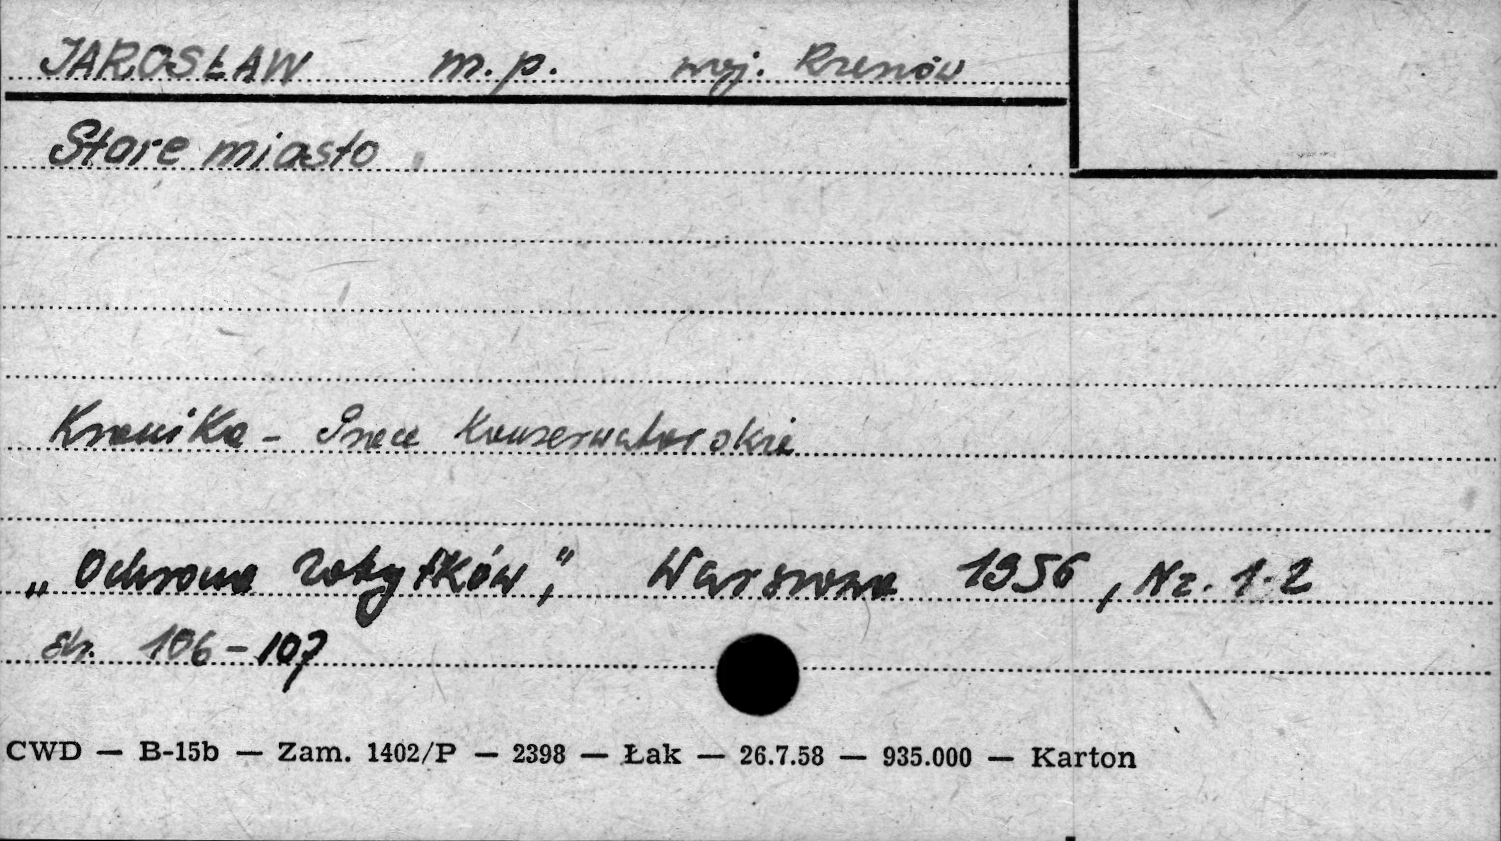 JAROSŁAW m.p. woj. Rzeszów
Stare miasto
Kronika - Prace Konserwatorskie
„Ochrona Zabytków", Warszawa 1956, Nr. 1-2
str. 106-107
CWD — B-15b — Zam. 1402/P — 2398 — Łak — 26.7.58 — 935.000 — Karton